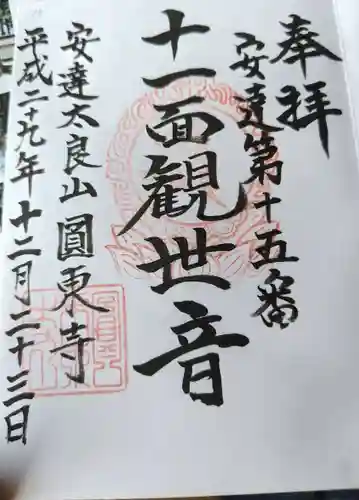 奉拝
安達第十五番
十一面観世音
安達太良山圓東寺
平成二十九年十二月二十三日